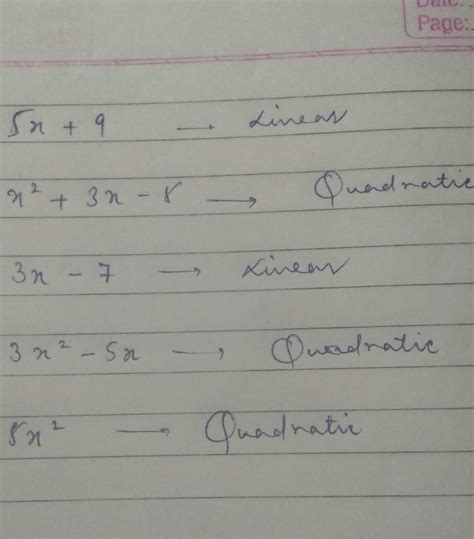 Date:
Page:
5x + 9 → Linear
x² + 3x - 8 → Quadratic
3x - 7 → Linear
3x² - 5x → Quadratic
5x² → Quadratic